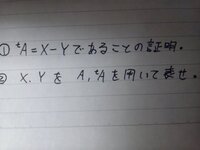 ① ᵗA=X-Yであることの証明.
② X.Yを A,ᵗAを用いて表せ.